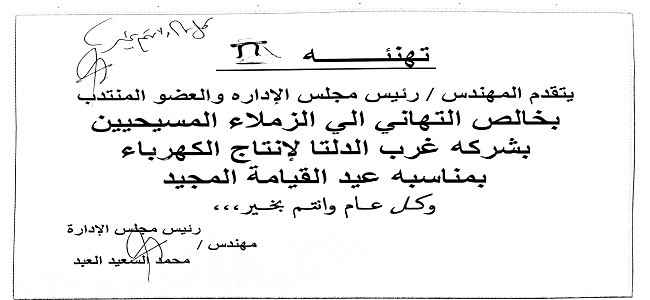 كل عام وأنتم بخير
تهنئــــــــه
يتقدم المهندس / رئيس مجلس الإداره والعضو المنتدب
بخالص التهاني الي الزملاء المسيحيين
بشركه غرب الدلتا لإنتاج الكهرباء
بمناسبه عيد القيامة المجيد
وكل عـام وانتم بخير,,,
رئيس مجلس الإدارة
مهندس /
محمد السعيد العبد